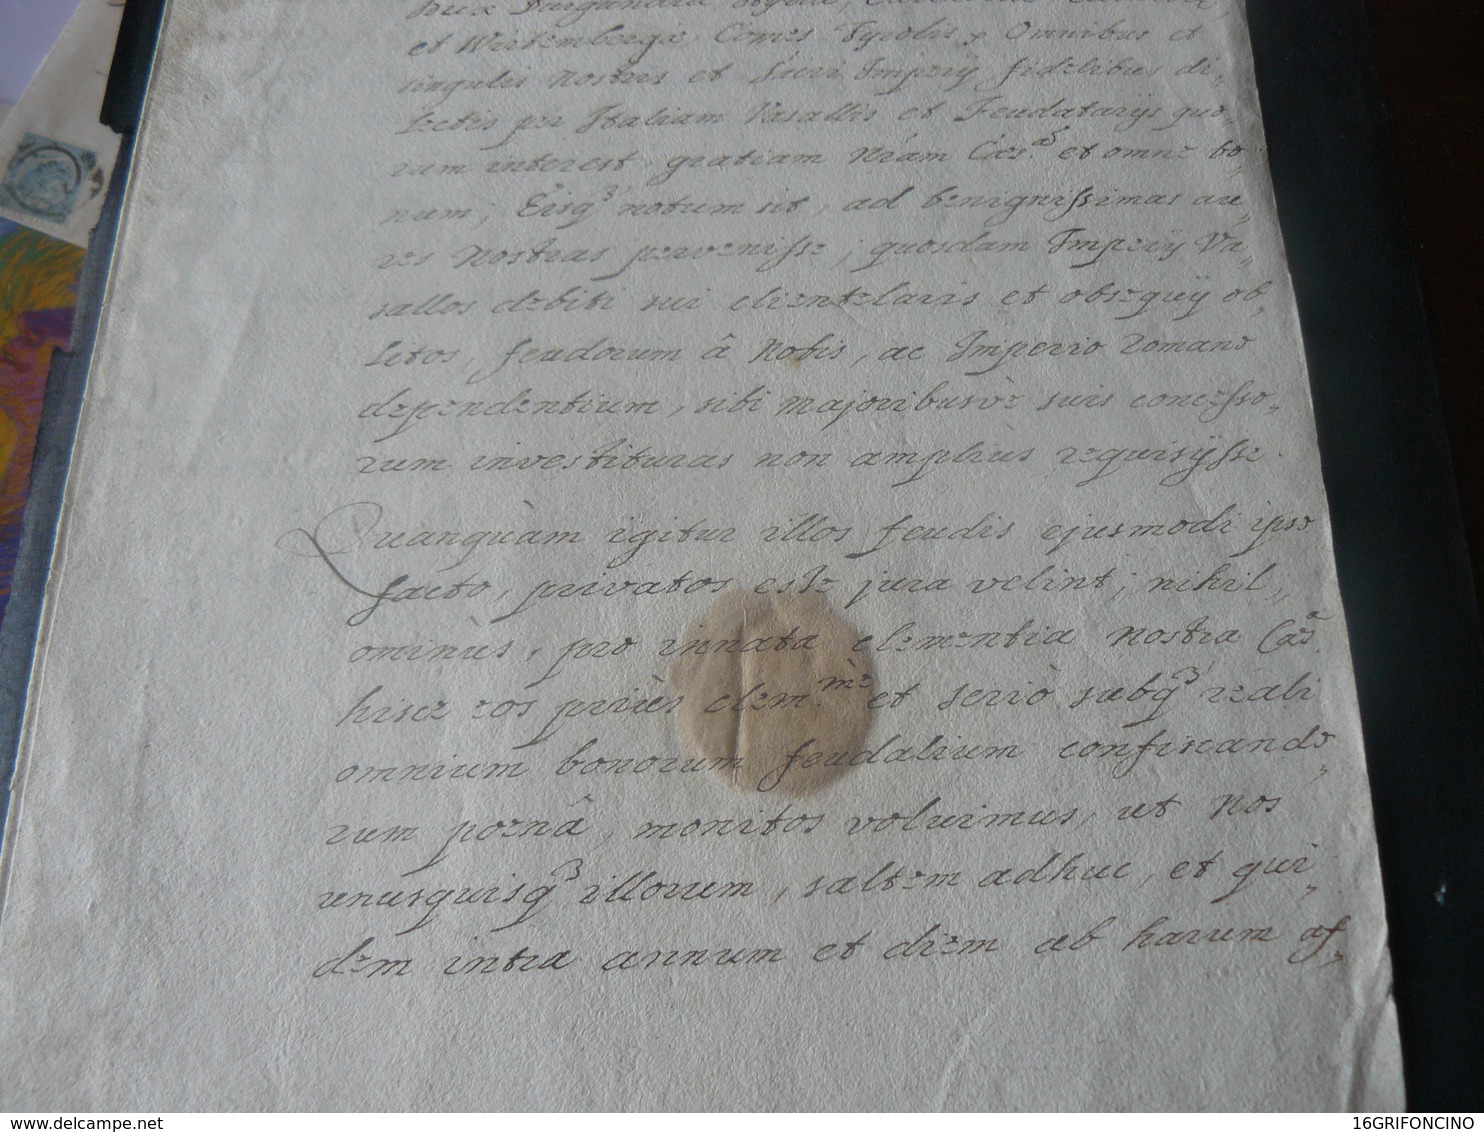 Dux Burgundiæ, Styriæ, Carinthiæ
et Wirtembergæ, Comes Tyrolis, Omnibus et
singulis Nostris et Sacri Imperÿ fidelibus di„
lectis per Italiam Vasallis et Feudatarÿs quo„
rum interest, gratiam Nr̃am Cæs.ᵃ et omne bo„
num; Eisq́ȝ notum sit, ad benignissimas au„
res Nostras pervenisse, quosdam Imperÿ Va„
sallos debiti sui clientelaris et obsequÿ ob„
litos, feudorum â Nobis, ac Imperio Romano
dependentium, sibi majoribusvè suis concesso„
rum investituras non amplius requisÿsse.
Quanqùam igitur illos feudis ejusmodi ipso
facto, privatos esse jura velint; nihil„
ominùs, pro innata clementia Nostra Cæs.ᵃ
hisce eos priùs clem.ᵐᵉ̀ et seriò subq́ȝ reali
omnium bonorum feudalium confiscando„
rum poenâ, monitos voluimus, ut Nos
unusquisq́ȝ illorum, saltem adhuc, et qui„
dem intra annum et diem ab harum af„
delcampe.net
16GRIFONCINO